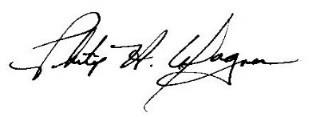 Philip H. Wagner